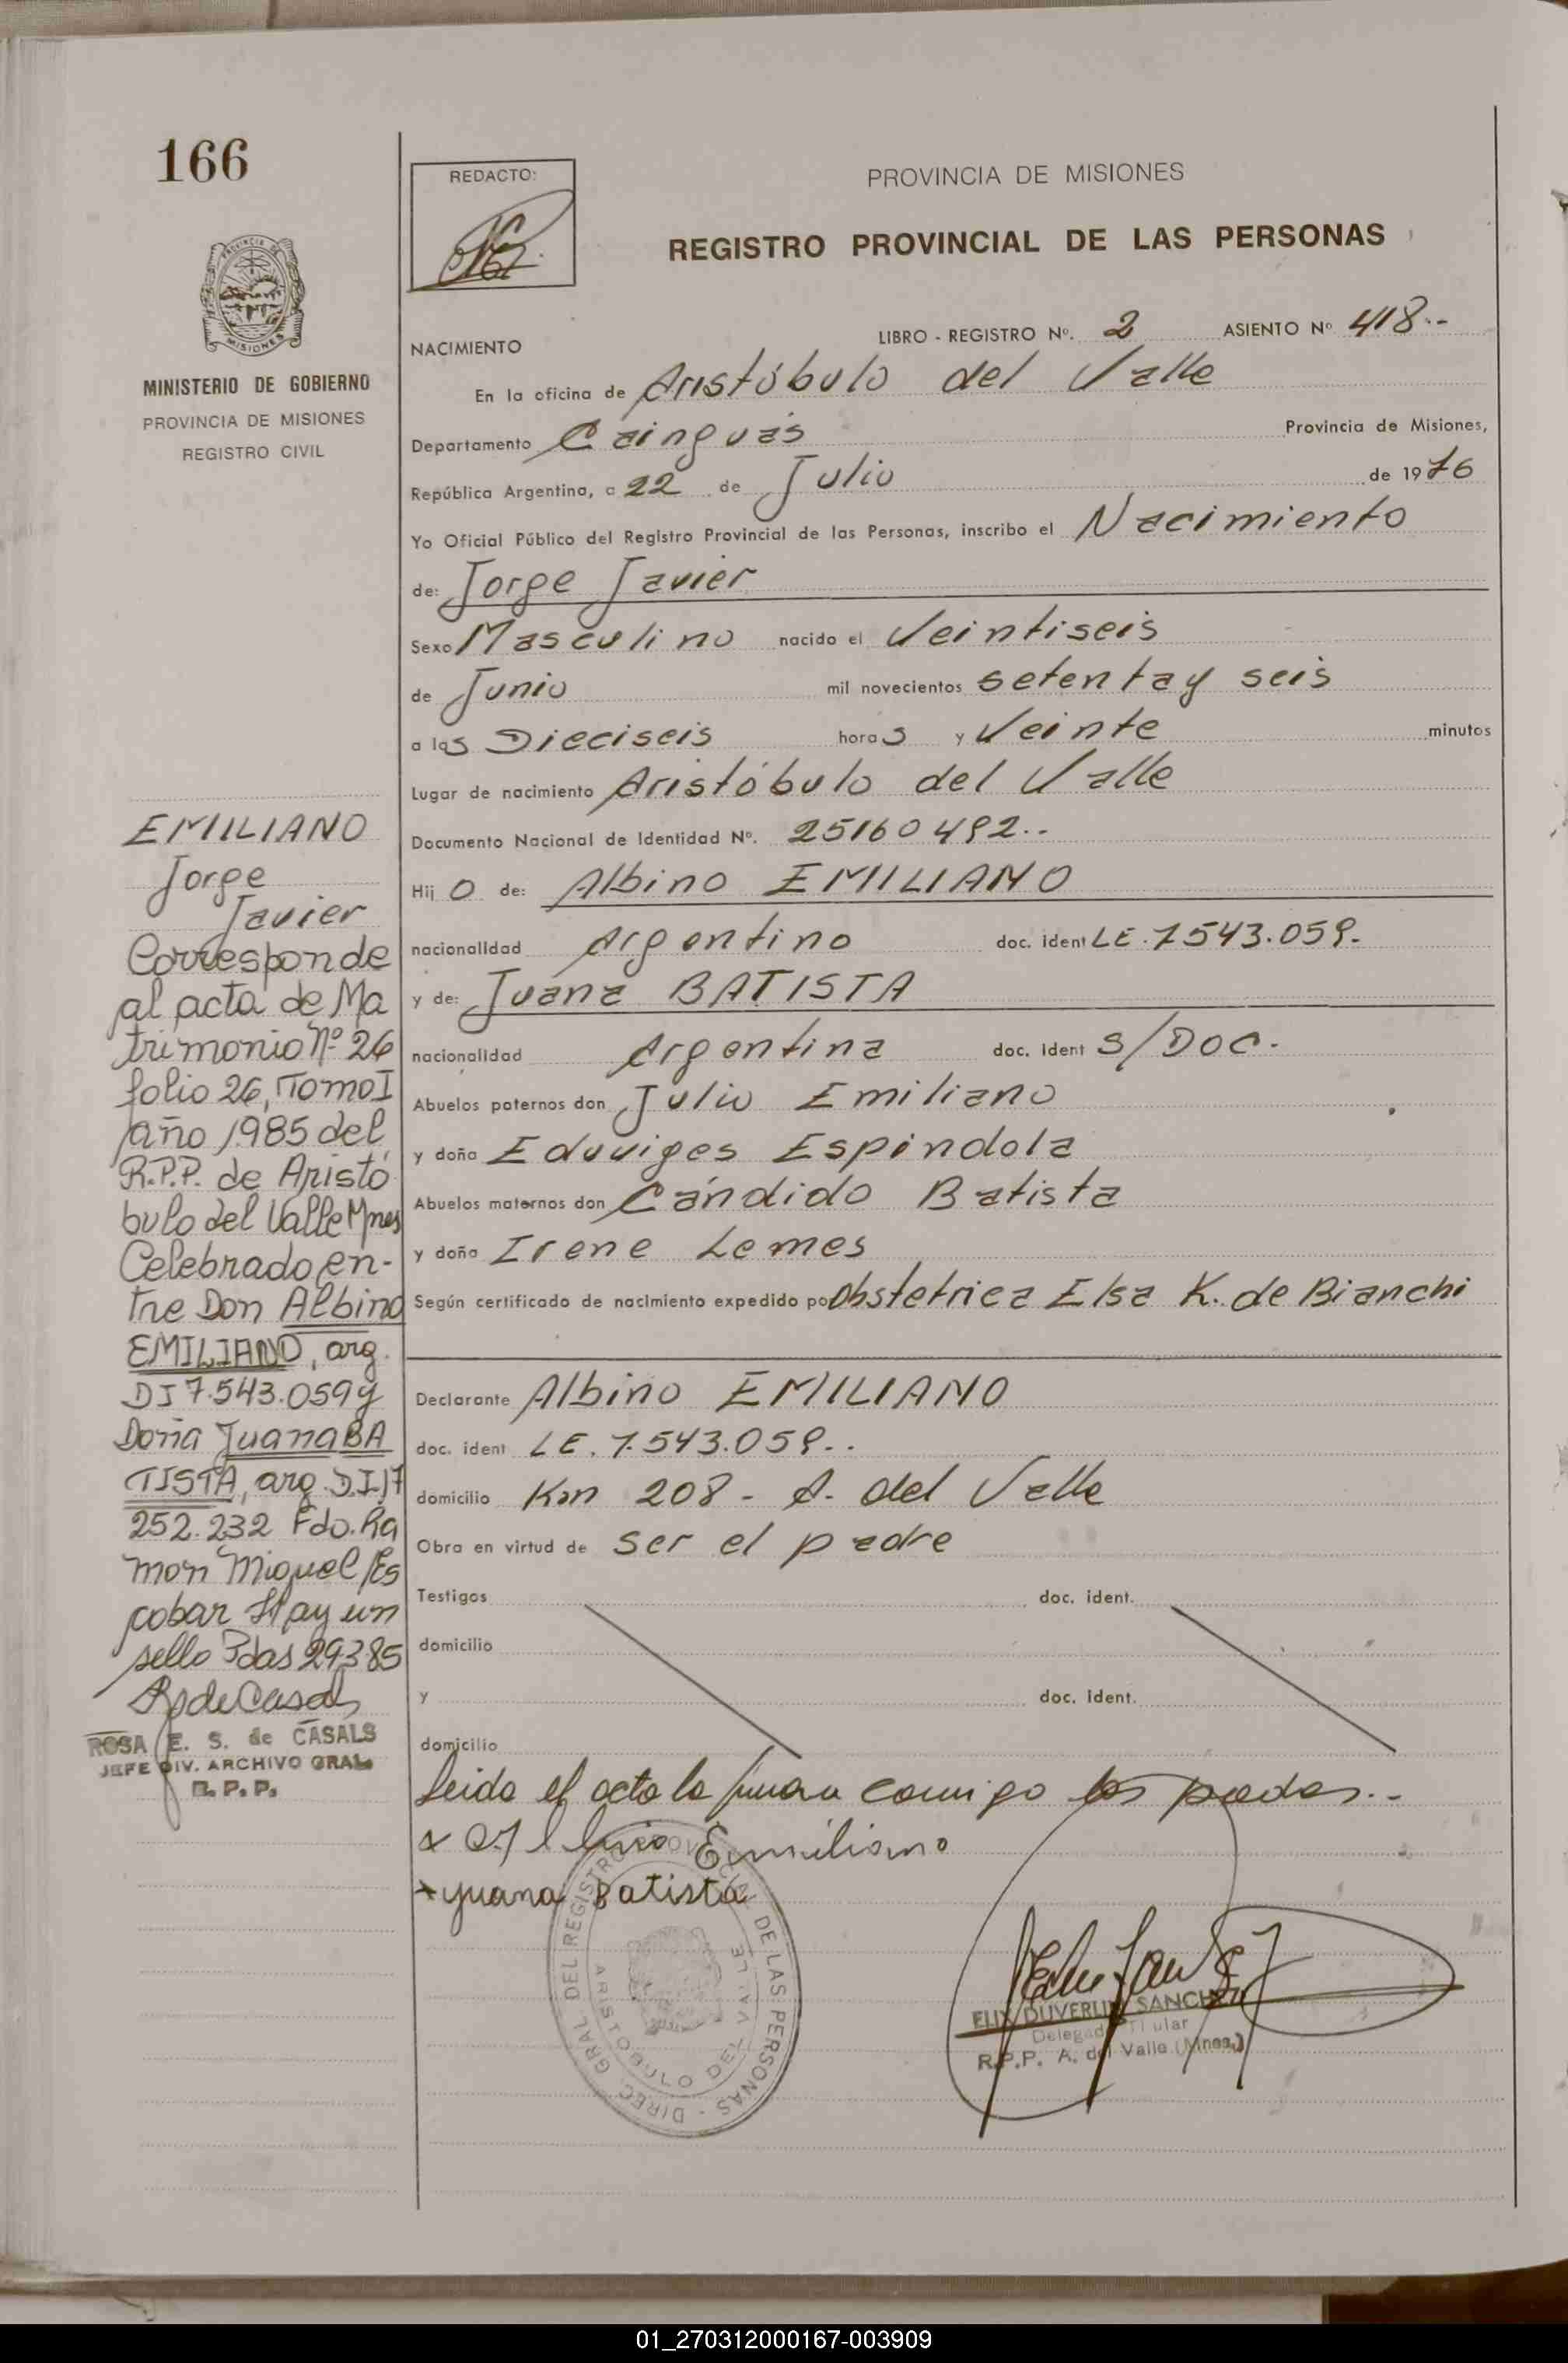 166
REDACTO:
PROVINCIA DE MISIONES
REGISTRO PROVINCIAL DE LAS PERSONAS
MISIONES
MINISTERIO DE GOBIERNO
PROVINCIA DE MISIONES
REGISTRO CIVIL
NACIMIENTO LIBRO - REGISTRO Nº. 2 ASIENTO Nº 418.-
En la oficina de Aristóbulo del Valle
Departamento Cainguás Provincia de Misiones,
República Argentina, a 22 de Julio de 1976
Yo Oficial Público del Registro Provincial de las Personas, inscribo el Nacimiento
de: Jorge Javier
Sexo Masculino nacido el Veintiseis
de Junio mil novecientos setenta y seis
a las Dieciseis horas y Veinte minutos
Lugar de nacimiento Aristóbulo del Valle
Documento Nacional de Identidad Nº. 25160492..
Hijo de: Albino EMILIANO
nacionalidad Argentino doc. ident LE.7543.059.-
y de: Juana BATISTA
nacionalidad Argentina doc. ident S/DOC.-
Abuelos paternos don Julio Emiliano
y doña Eduviges Espindola
Abuelos maternos don Cándido Batista
y doña Irene Lemes
Según certificado de nacimiento expedido po Obstetrica Elsa K. de Bianchi
Declarante Albino EMILIANO
doc. ident LE. 7.543.059..
domicilio Km 208 - A. del Valle
Obra en virtud de ser el padre
Testigos doc. ident.
domicilio
y doc. ident.
domicilio
Leida el acta la firman conmigo los padres.-
x Albino Emiliano
x Juana Batista
DIREC. GRAL. DEL REGISTRO PROVINCIAL DE LAS PERSONAS
ARISTOBULO DEL VALLE
ELIX DUVERLIN SANCHEZ
Delegado Titular
R.P.P. A. del Valle (Mnes.)
EMILIANO
Jorge
Javier
Corresponde
al acta de Ma
trimonio Nº 26
folio 26, Tomo I
año 1985 del
R.P.P. de Aristó
bulo del Valle Mnes
Celebrado en-
tre Don Albino
EMILIANO, arg.
DI 7.543.059 y
Doña Juana BA
TISTA, arg. D.I. 17
252.232 Fdo. Ra
mon Miguel Es
cobar Hay un
sello Pdas 29385
R de Casals
ROSA E. S. de CASALS
JEFE DIV. ARCHIVO GRAL.
R.P.P.
01_270312000167-003909